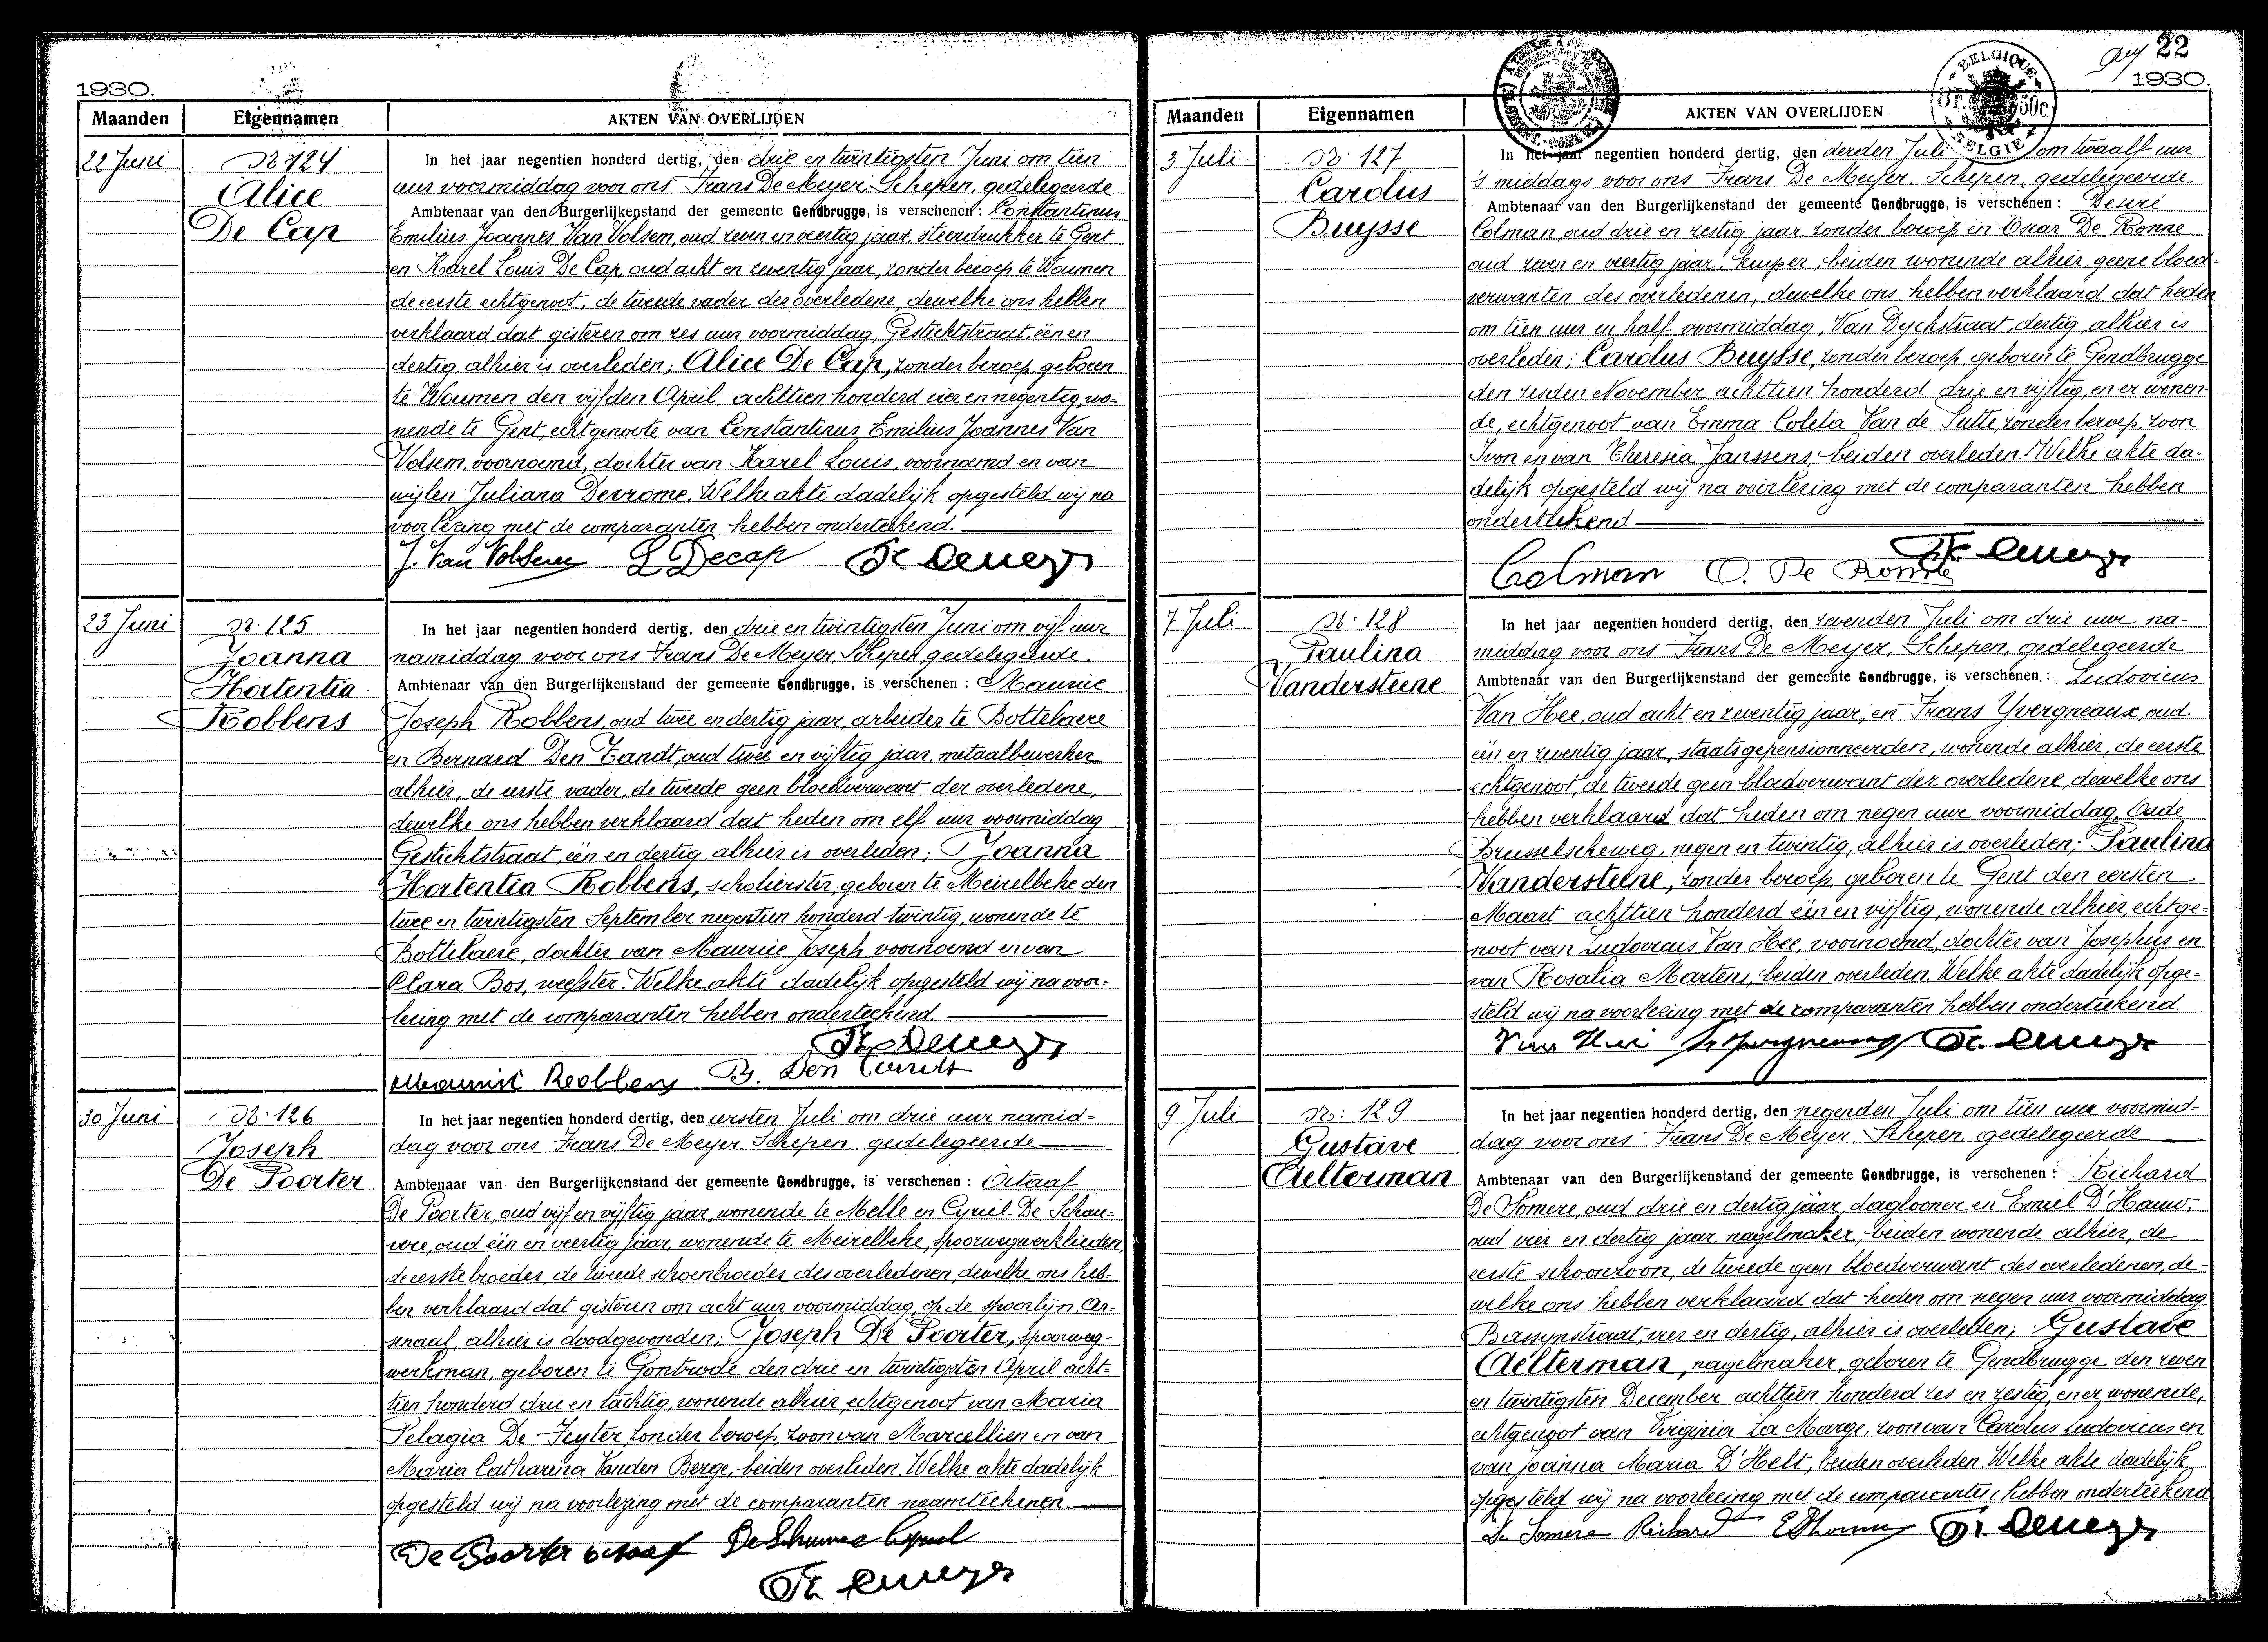 1930.
Maanden Eigennamen AKTEN VAN OVERLIJDEN
22 Juni
N° 124
Alice
De Cap
In het jaar negentien honderd dertig, den drie en twintigsten Juni om tien
uur voormiddag voor ons Frans De Meyer, Schepen, gedelegeerde
Ambtenaar van den Burgerlijkenstand der gemeente Gendbrugge, is verschenen : Constantinus
Emilius Joannes Van Volsem, oud zeven en veertig jaar, steendrukker te Gent
en Karel Louis De Cap, oud acht en zeventig jaar, zonder beroep te Woumen
de eerste echtgenoot, de tweede vader der overledene, dewelke ons hebben
verklaard dat gisteren om zes uur voormiddag, Gestichtstraat, één en
dertig, alhier is overleden; Alice De Cap, zonder beroep, geboren
te Woumen den vijfden April achttien honderd vier en negentig, wo-
nende te Gent, echtgenoote van Constantinus Emilius Joannes Van
Volsem, voornoemd, dochter van Karel Louis, voornoemd en van
wijlen Juliana Devrome. Welke akte dadelijk opgesteld wij na
voorlezing met de comparanten hebben onderteekend.
J. Van Volsem L Decap Fr. Demeyer
23 Juni
N° 125
Joanna
Hortentia
Robbens
In het jaar negentien honderd dertig, den drie en twintigsten Juni om vijf uur
namiddag voor ons Frans De Meyer, Schepen, gedelegeerde
Ambtenaar van den Burgerlijkenstand der gemeente Gendbrugge, is verschenen : Maurice
Joseph Robbens, oud twee en dertig jaar, arbeider te Bottelaere
en Bernard Den Tandt, oud twee en vijftig jaar, metaalbewerker
alhier, de eerste vader, de tweede geen bloedverwant der overledene,
dewelke ons hebben verklaard dat heden om elf uur voormiddag
Gestichtstraat, één en dertig, alhier is overleden; Joanna
Hortentia Robbens, scholierster, geboren te Meirelbeke den
twee en twintigsten September negentien honderd twintig, wonende te
Bottelaere, dochter van Maurice Joseph, voornoemd en van
Clara Bos, weefster. Welke akte dadelijk opgesteld wij na voor-
lezing met de comparanten hebben onderteekend.
Fr. Demeyer
Maurice Robbens B. Den Tandt
30 Juni
N° 126
Joseph
De Poorter
In het jaar negentien honderd dertig, den eersten Juli om drie uur namid-
dag voor ons Frans De Meyer, Schepen, gedelegeerde
Ambtenaar van den Burgerlijkenstand der gemeente Gendbrugge, is verschenen : Octaaf
De Poorter, oud vijf en vijftig jaar, wonende te Melle en Cyriel De Schau-
vre, oud één en veertig jaar, wonende te Meirelbeke, spoorwegwerklieden,
de eerste broeder, de tweede schoonbroeder des overledenen, dewelke ons heb-
ben verklaard dat gisteren om acht uur voormiddag, op de spoorlijn, Ar-
senaal, alhier is doodgevonden; Joseph De Poorter, spoorweg-
werkman, geboren te Gontrode den drie en twintigsten April acht-
tien honderd drie en tachtig, wonende alhier, echtgenoot van Maria
Pelagia De Feyter, zonder beroep, zoon van Marcellien en van
Maria Catharina Vanden Berge, beiden overleden. Welke akte dadelijk
opgesteld wij na voorlezing met de comparanten naamteekenen.
De Poorter octaaf Cyriel
Fr. Demeyer
22
1930.
Maanden Eigennamen AKTEN VAN OVERLIJDEN
BELGIQUE
50c.
BELGIE
3 Juli
N° 127
Carolus
Buysse
In het jaar negentien honderd dertig, den derden Juli om twaalf uur
's middags voor ons Frans De Meyer, Schepen, gedelegeerde
Ambtenaar van den Burgerlijkenstand der gemeente Gendbrugge, is verschenen : Desiré
Colman, oud drie en zestig jaar, zonder beroep en Oscar De Ronne
oud zeven en veertig jaar, kuiper, beiden wonende alhier, geene bloed-
verwanten des overledenen, dewelke ons hebben verklaard dat heden
om tien uur en half voormiddag, Van Dyckstraat, dertig, alhier is
overleden; Carolus Buysse, zonder beroep, geboren te Gendbrugge
den zesden November achttien honderd drie en vijftig, en er wonen-
de, echtgenoot van Emma Coleta Van de Putte, zonder beroep, zoon
Ivon en van Theresia Janssens, beiden overleden. Welke akte da-
delijk opgesteld wij na voorlezing met de comparanten hebben
onderteekend
Fr. Demeyer
Colman O. De Ronne
7 Juli
N° 128
Paulina
Vandersteene
In het jaar negentien honderd dertig, den zevenden Juli om drie uur na-
middag voor ons Frans De Meyer, Schepen, gedelegeerde
Ambtenaar van den Burgerlijkenstand der gemeente Gendbrugge, is verschenen : Ludovicus
Van Hee, oud acht en zeventig jaar, en Frans Yvergneaux, oud
één en zeventig jaar, staatsgepensionneerden, wonende alhier, de eerste
echtgenoot, de tweede geen bloedverwant der overledene, dewelke ons
hebben verklaard dat heden om negen uur voormiddag, Oude
Brusselscheweg, negen en twintig, alhier is overleden; Paulina
Vandersteene, zonder beroep, geboren te Gent den eersten
Maart achttien honderd één en vijftig, wonende alhier, echtge-
noot van Ludovicus Van Hee, voornoemd, dochter van Josephus en
van Rosalia Martens, beiden overleden. Welke akte dadelijk opge-
steld wij na voorlezing met de comparanten hebben onderteekend.
Van Hee Fr. Demeyer
9 Juli
N° 129
Gustave
Aelterman
In het jaar negentien honderd dertig, den negenden Juli om tien uur voormid-
dag voor ons Frans De Meyer, Schepen, gedelegeerde
Ambtenaar van den Burgerlijkenstand der gemeente Gendbrugge, is verschenen : Richard
De Somere, oud drie en dertig jaar, daglooner en Emiel D'Hauw,
oud vier en dertig jaar, nagelmaker, beiden wonende alhier, de
eerste schoonzoon, de tweede geen bloedverwant des overledenen, de-
welke ons hebben verklaard dat heden om negen uur voormiddag
Bassijnstraat, vier en dertig, alhier is overleden; Gustave
Aelterman, nagelmaker, geboren te Gendbrugge den zeven
en twintigsten December achttien honderd zes en zestig, en er wonende,
echtgenoot van Virginia La Marge, zoon van Carolus Ludovicus en
van Joanna Maria D'Helt, beiden overleden. Welke akte dadelijk
opgesteld wij na voorlezing met de comparanten hebben onderteekend
De Somere Richard Fr. Demeyer